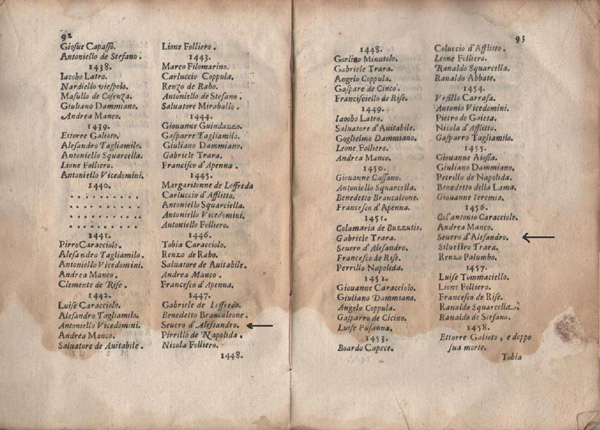 92
Giosue Capasso.
Antoniello de Stefano.
1438.
Iacobo Latro.
Nardiello viespolo.
Masullo de Cosenza.
Giuliano Dammiano.
Andrea Manco.
1439.
Ettorre Galioto.
Alesandro Tagliamilo.
Antoniello Squarcella.
Lione Folliero.
Antoniello Vicedomini.
1440.
. . . . . . . . . .
. . . . . . . . . .
. . . . . . . . . .
1441.
Pirro Caracciolo.
Alesandro Tagliamilo.
Antoniello Vicedomini.
Andrea Manco.
Clemente de Rise.
1442.
Luise Caracciolo.
Alesandro Tagliamilo.
Antoniello Vicedomini.
Andrea Manco.
Saluatore de Auitabile.
Lione Folliero.
1443.
Marco Filomarino.
Carluccio Coppula.
Renzo de Rabo.
Antoniello de Stefano.
Saluatore Miraballo.
1444.
Giouanne Guindazzo.
Gasparre Tagliamilo.
Giuliano Dammiano.
Gabriele Trara.
Francisco d'Apenna.
1445.
Margaritonne de Loffreda
Carluccio d'Afflitto.
Antoniello Squarciella.
Antoniello Vicedomini.
Antoniello Folliero.
1446.
Tobia Caracciolo.
Renzo de Rabo.
Saluatore de Auitabile.
Andrea Manco.
Francesco d'Apenna.
1447.
Gabriele de Loffredo.
Benedetto Brancaleone.
Seuero d'Alessandro.
Pirrillo de Napolida.
Nicola Folliero.
1448.
93
1448.
Gorlino Minutolo.
Gabriele Trara.
Angelo Coppula.
Gaspare de Cinco.
Francischiello de Rise.
1449.
Iacobo Latro.
Saluatore d'Auitabile.
Goglielmo Dammiano.
Lione Folliero.
Andrea Manco.
1450.
Giouanne Cassano.
Antoniello Squarcella.
Benedetto Brancalone.
Francesco d'Apenna.
1451.
Colamaria de Buzzutis.
Gabriele Trara.
Seuero d'Alesandro.
Francesco de Rise.
Perrillo Napoleda.
1452.
Giouanne Caracciolo.
Giuliano Dammiano.
Angelo Coppula.
Gasparro de Cicino.
Luise Pusanna.
1453.
Boardo Capece.
Coluccio d'Afflitto.
Leone Folliero.
Ranaldo Squarcella.
Ranaldo Abbate.
1454.
Vrsillo Carrafa.
Antonio Vicedomini.
Pietro de Gaieta.
Nicola d'Afflitto.
Gasparro Tagliamilo.
1455.
Giouanne Aiossa.
Giuliano Dammiano.
Petrillo de Napolida.
Benedetto della Lama.
Giouanne Ieremia.
1456.
Col'antonio Caracciolo.
Andrea Manco.
Seuero d'Alesandro.
Siluestro Trara.
Renzo Palumbo.
1457.
Luise Tommaciello.
Lione Folliero.
Francesco de Rise.
Ranaldo Squarcella.
Ranaldo de Stefano.
1458.
Ettorre Galioto, e doppo
sua morte.
Tobia